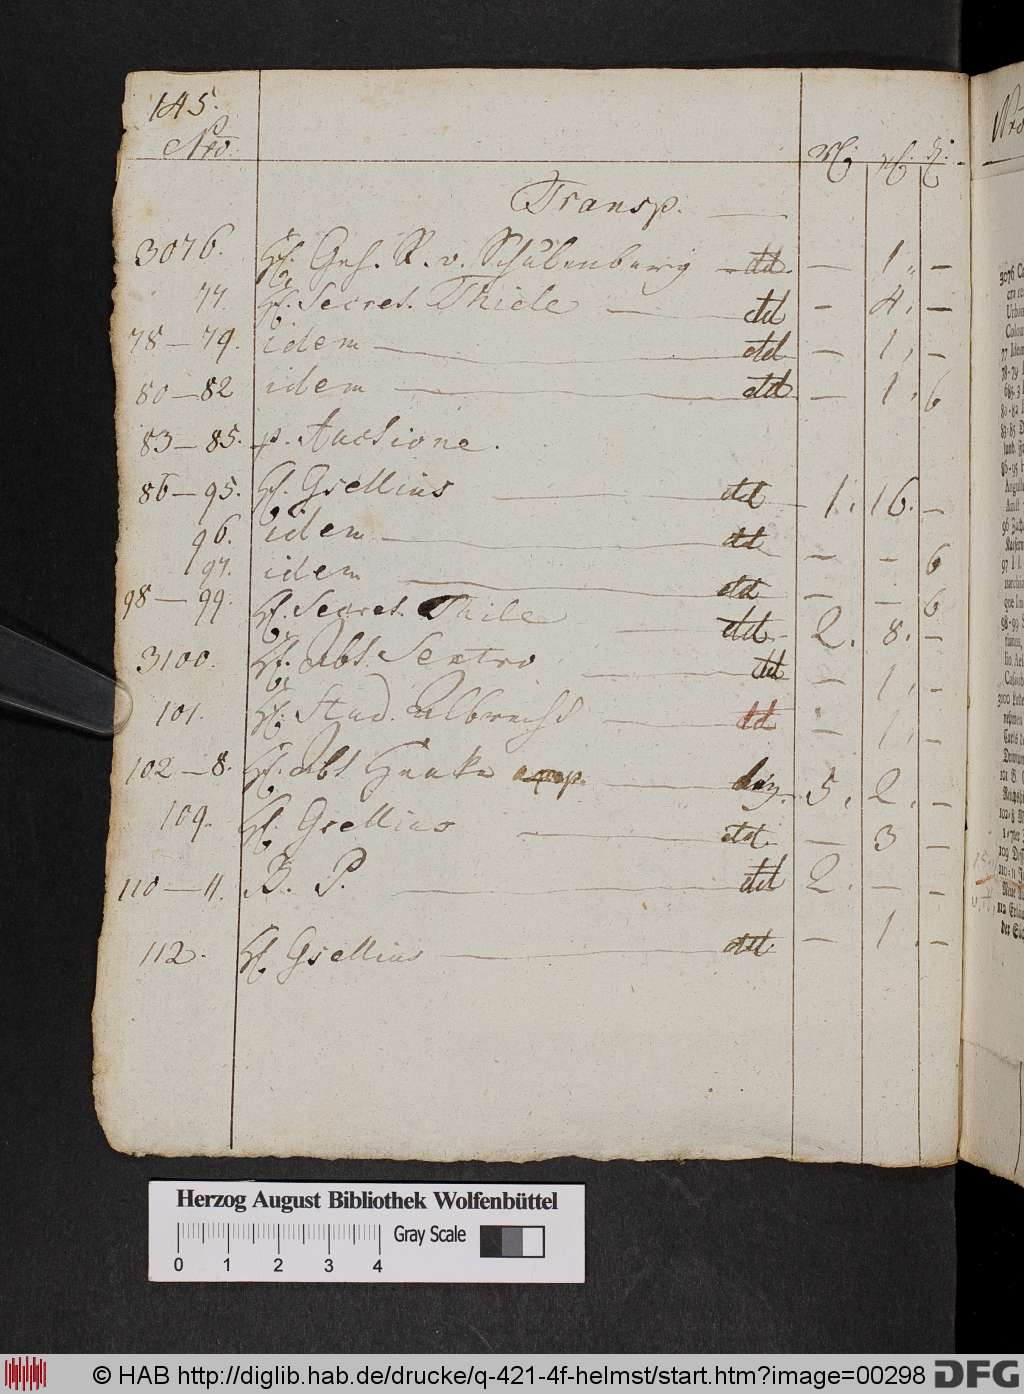 145.
Nro.
Transp.
3076. H. Geh. R. v. Schulenburg — dd. — 1 „ —
77. H. Secret. Thiele — dd — 4. —
78—79. idem — dd — 1, —
80—82 idem — dd — 1. 6
83—85. p. Auctione.
86—95. H. Gsellius — dd — 1. 16. —
96. idem — dd — — 6
97. idem — dd — — 6
98—99. H. Secret. Thile — dd — 2. 8. —
3100. H. Abt. Sextro — dd — 1, —
101. H. Stud. Albrecht — dd — 1. —
102—8. H. Abt Henke 5. 2. —
109. H. Gsellius — dd. — 3 —
110—11. B. P. — dd 2. — —
112. H. Gsellius — dd — 1. —
Herzog August Bibliothek Wolfenbüttel
Gray Scale
0 1 2 3 4
© HAB http://diglib.hab.de/drucke/q-421-4f-helmst/start.htm?image=00298 DFG